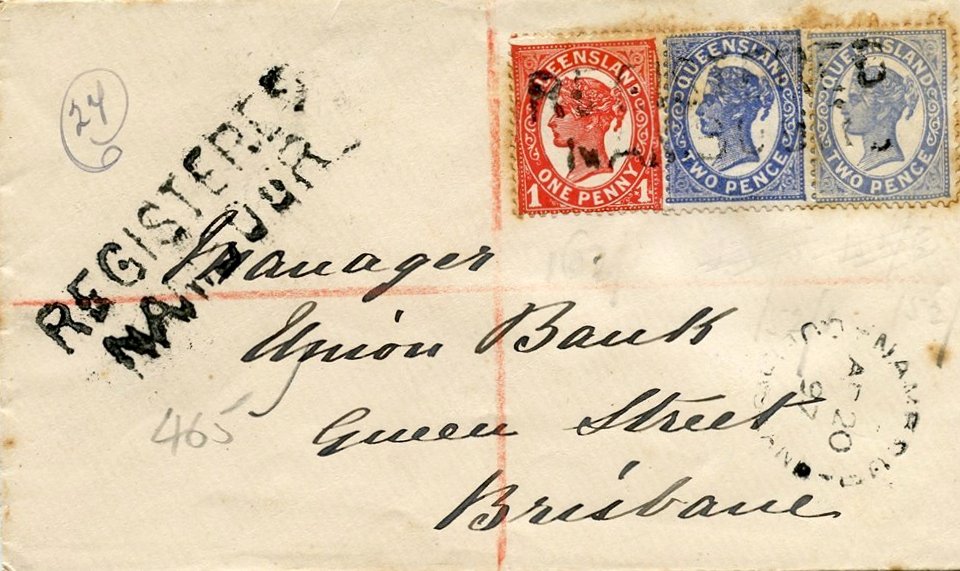 24
REGISTERED
NAMBOUR
QUEENSLAND
ONE PENNY
1
QUEENSLAND
TWO PENCE
QUEENSLAND
TWO PENCE
Manager
Union Bank
Queen Street
Brisbane
465
NAMBOUR
20
97